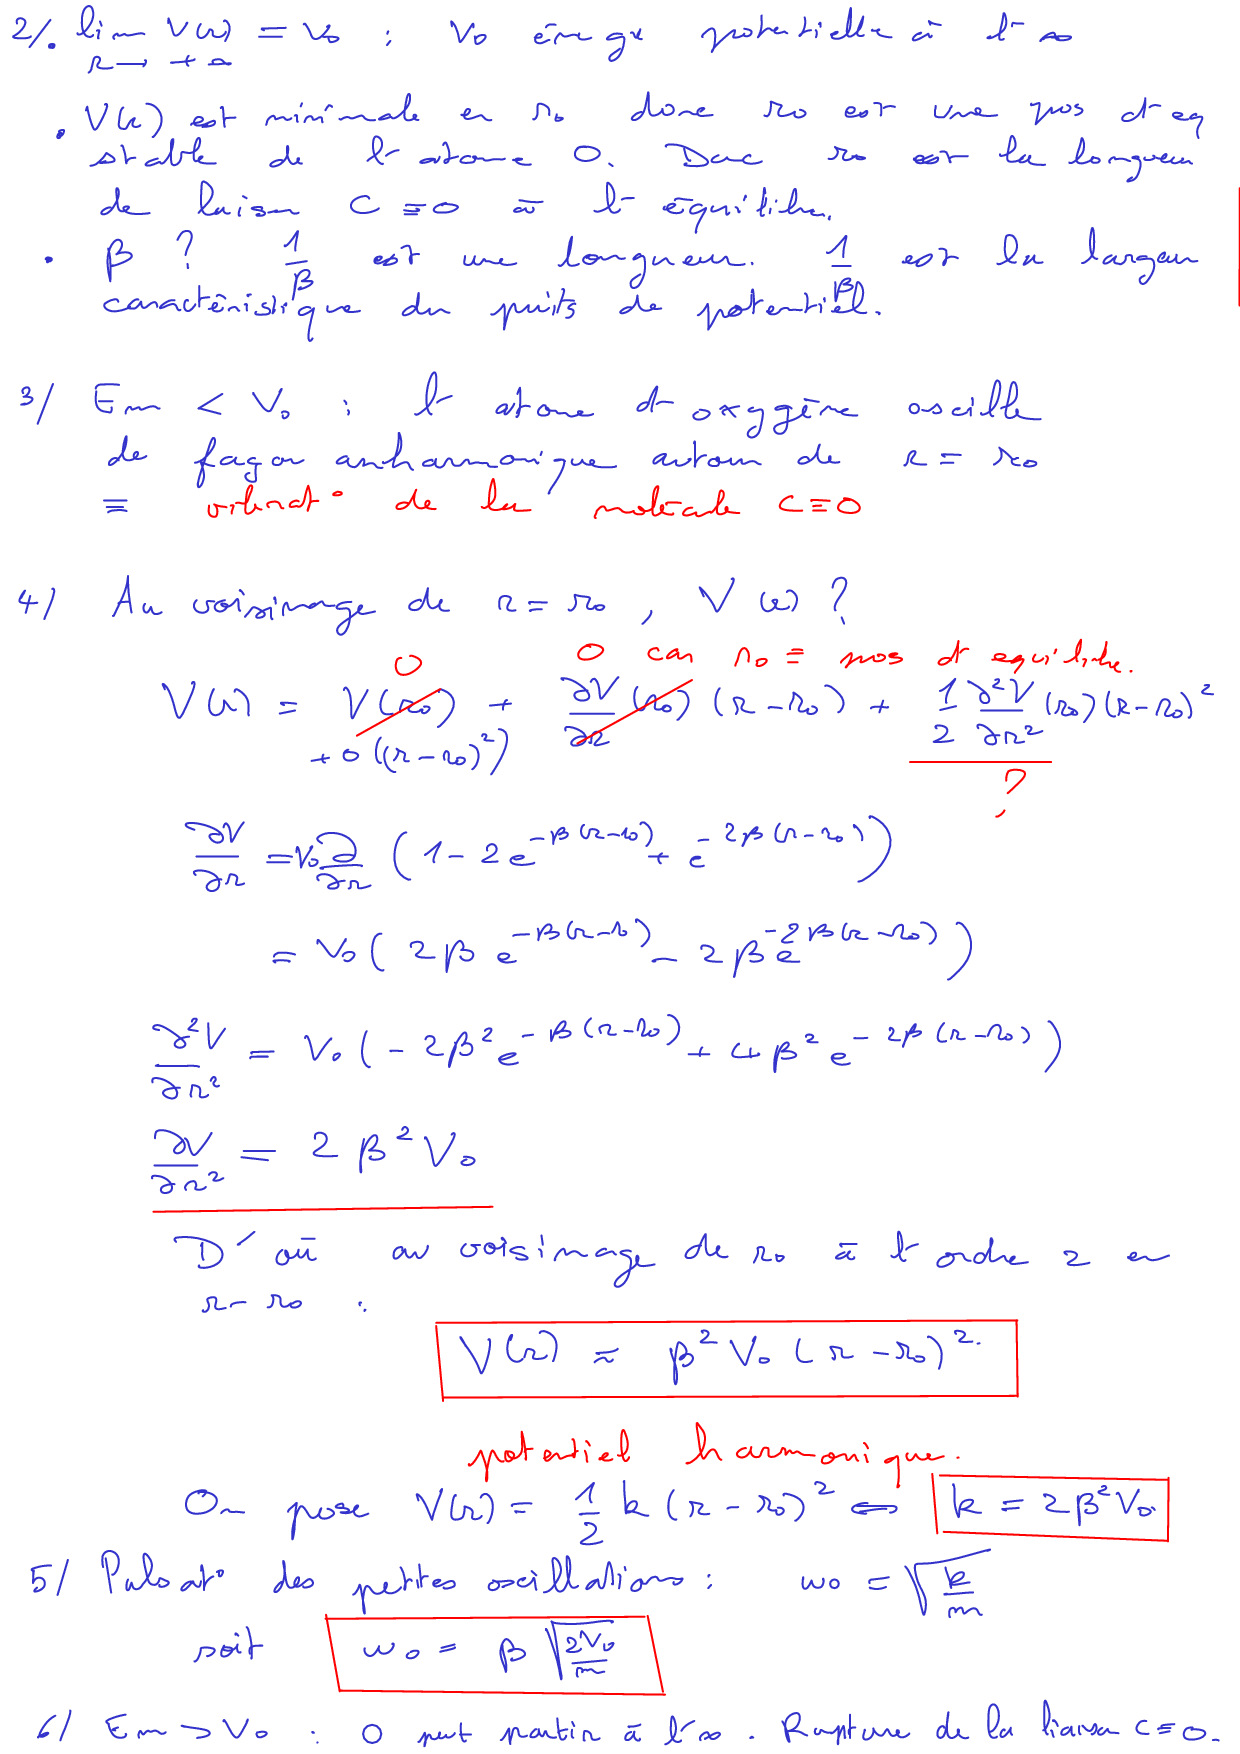 2/. lim V(r) = V0 : V0 énergie potentielle à l'∞
r → +∞
. V(r) est minimale en r0 donc r0 est une pos d'eq
stable de l'atome O. Donc r0 est la longueur
de liaison C≡O à l'équilibre.
. β ? 1/β est une longueur. 1/β est la largeur
caractéristique du puits de potentiel.
3/ Em < V0 : l'atome d'oxygène oscille
de façon anharmonique autour de r = r0
≡ vibrat° de la molécule C≡O
4/ Au voisinage de r = r0, V(r) ?
0 0 car r0 ≡ pos d'equilibre.
V(r) = V(r0) + ∂V/∂r (r0) (r-r0) + 1/2 ∂²V/∂r² (r0) (r-r0)²
+ o((r-r0)²)
?
∂V/∂r = V0 ∂/∂r (1 - 2e^{-β(r-r0)} + e^{-2β(r-r0)})
= V0 (2β e^{-β(r-r0)} - 2β e^{-2β(r-r0)})
∂²V/∂r² = V0 (-2β² e^{-β(r-r0)} + 4β² e^{-2β(r-r0)})
∂V/∂r² = 2 β² V0
D'où au voisinage de r0 à l'ordre 2 en
r-r0 :
V(r) ≈ β² V0 (r-r0)².
potentiel harmonique.
On pose V(r) = 1/2 k (r-r0)² ⇔ k = 2β²V0.
5/ Pulsat° des petites oscillations : ω0 = √(k/m)
soit ω0 = β √(2V0/m)
6/ Em > V0 : O peut partir à l'∞. Rupture de la liaison C≡O.